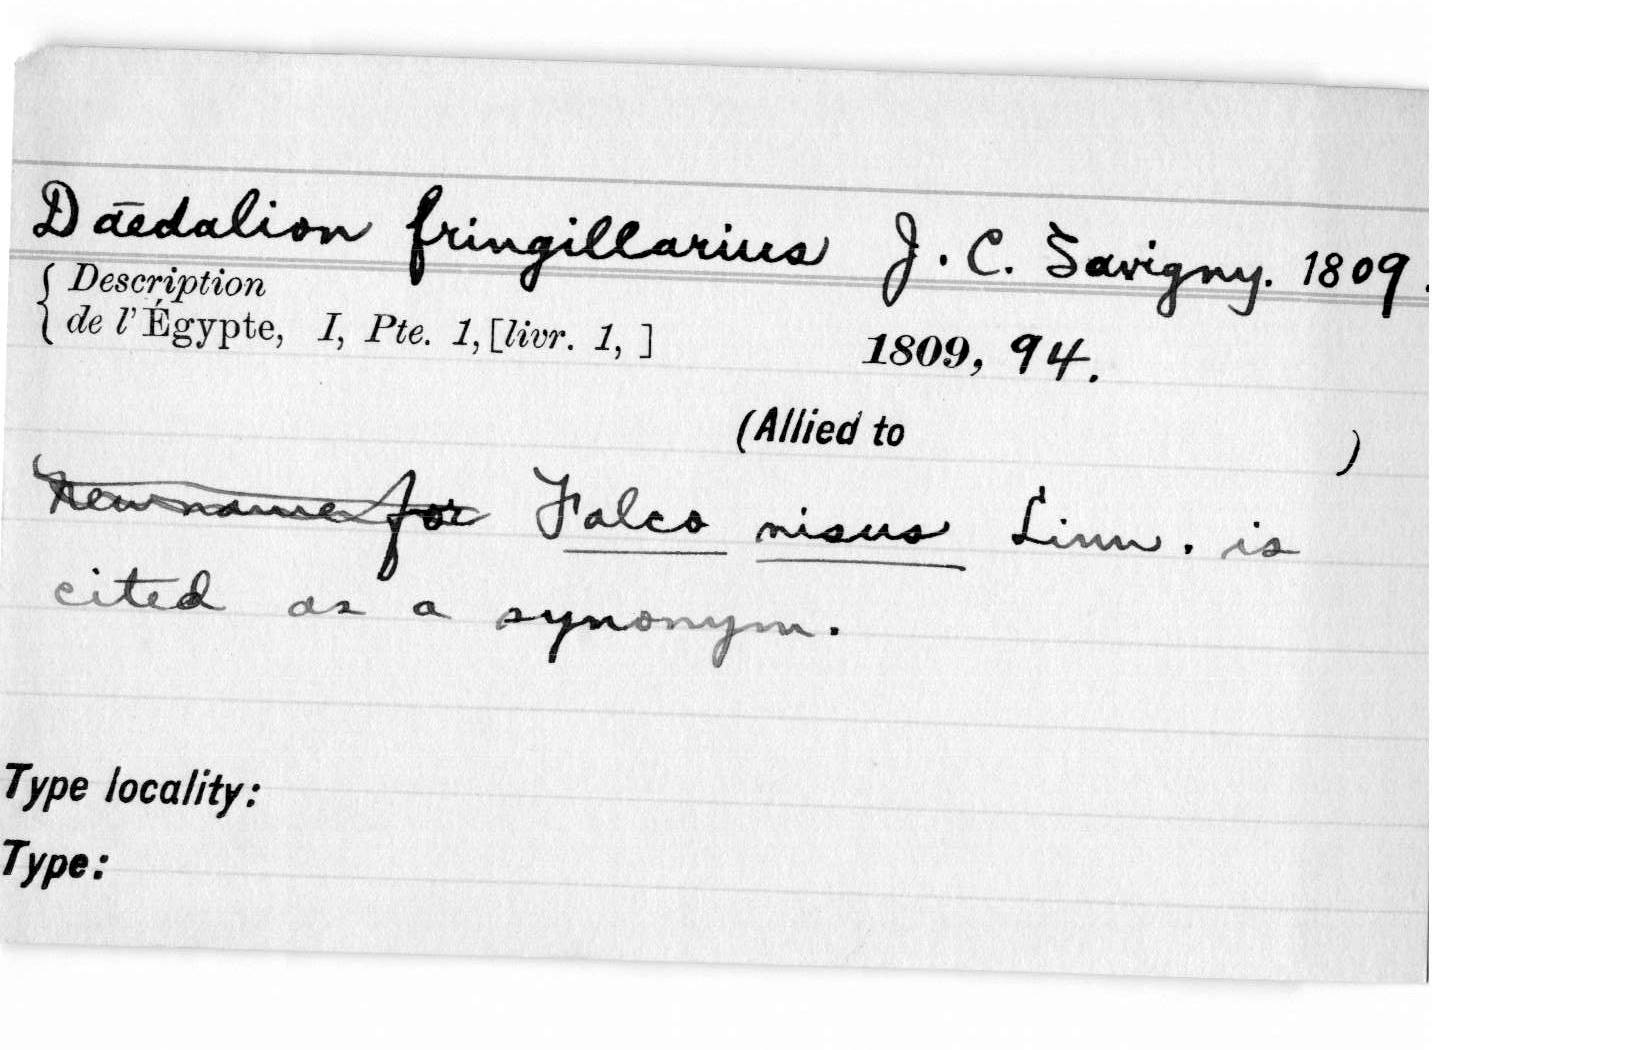 Daedalion fringillarius J. C. Savigny. 1809.
{ Description
de l'Égypte, I, Pte. 1, [livr. 1, ] 1809, 94.
(Allied to )
New name for Falco nisus Linn. is
cited as a synonym.
Type locality:
Type: